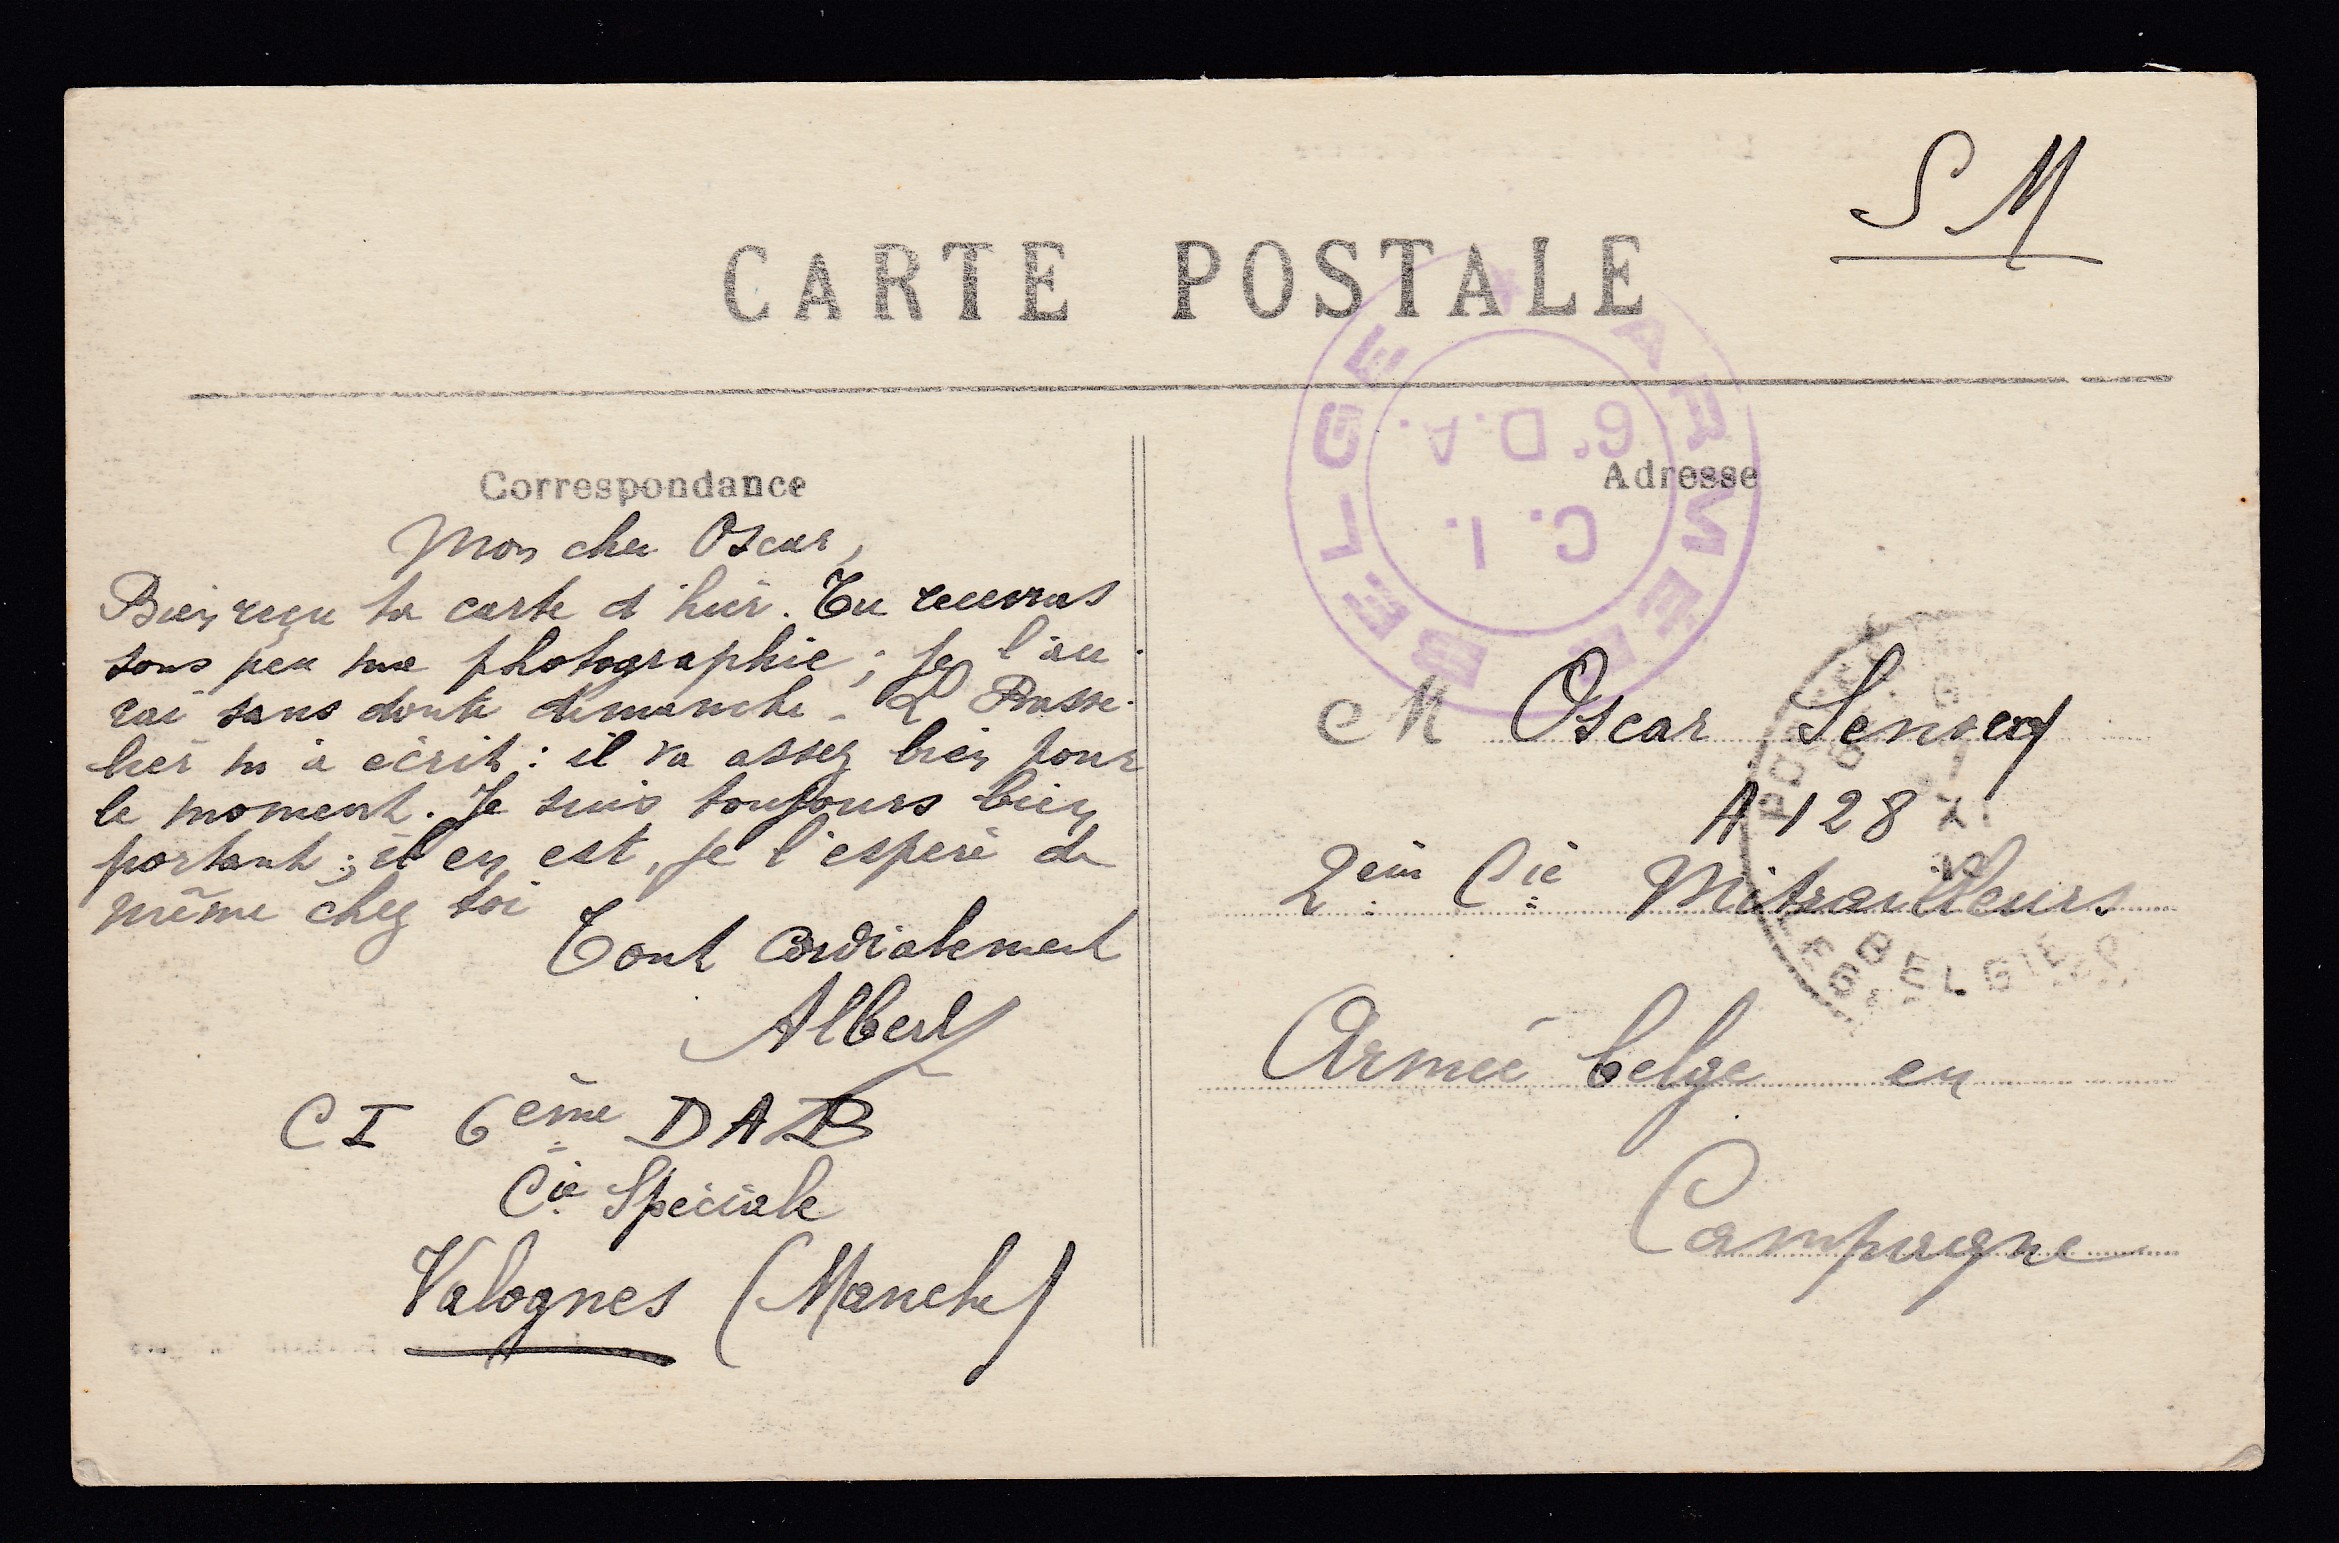 S M
CARTE POSTALE
ARMEE BELGE
6e D.A.
C.I.
Correspondance
Mon cher Oscar,
Bien reçu ta carte d'hier. Tu recevras
sous peu ma photographie ; je l'au
rai sans doute dimanche - L
hier m'a écrit : il va assez bien pour
le moment. Je suis toujours bien
portant ; il en est, je l'espère de
même chez toi
Tout cordialement
Albert
CI 6ème DAB
Cie Spéciale
Valognes (Manche)
Adresse
M Oscar
A 128
2ème Cie Mitrailleurs
Armée belge en
Campagne
BELGIE